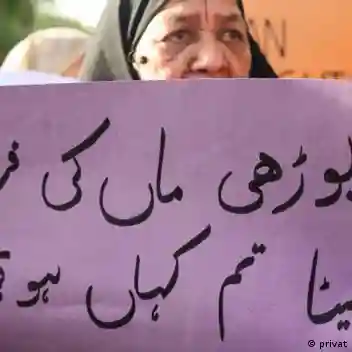 بوڑھی ماں کی
بیٹا تم کہاں ہو
© privat